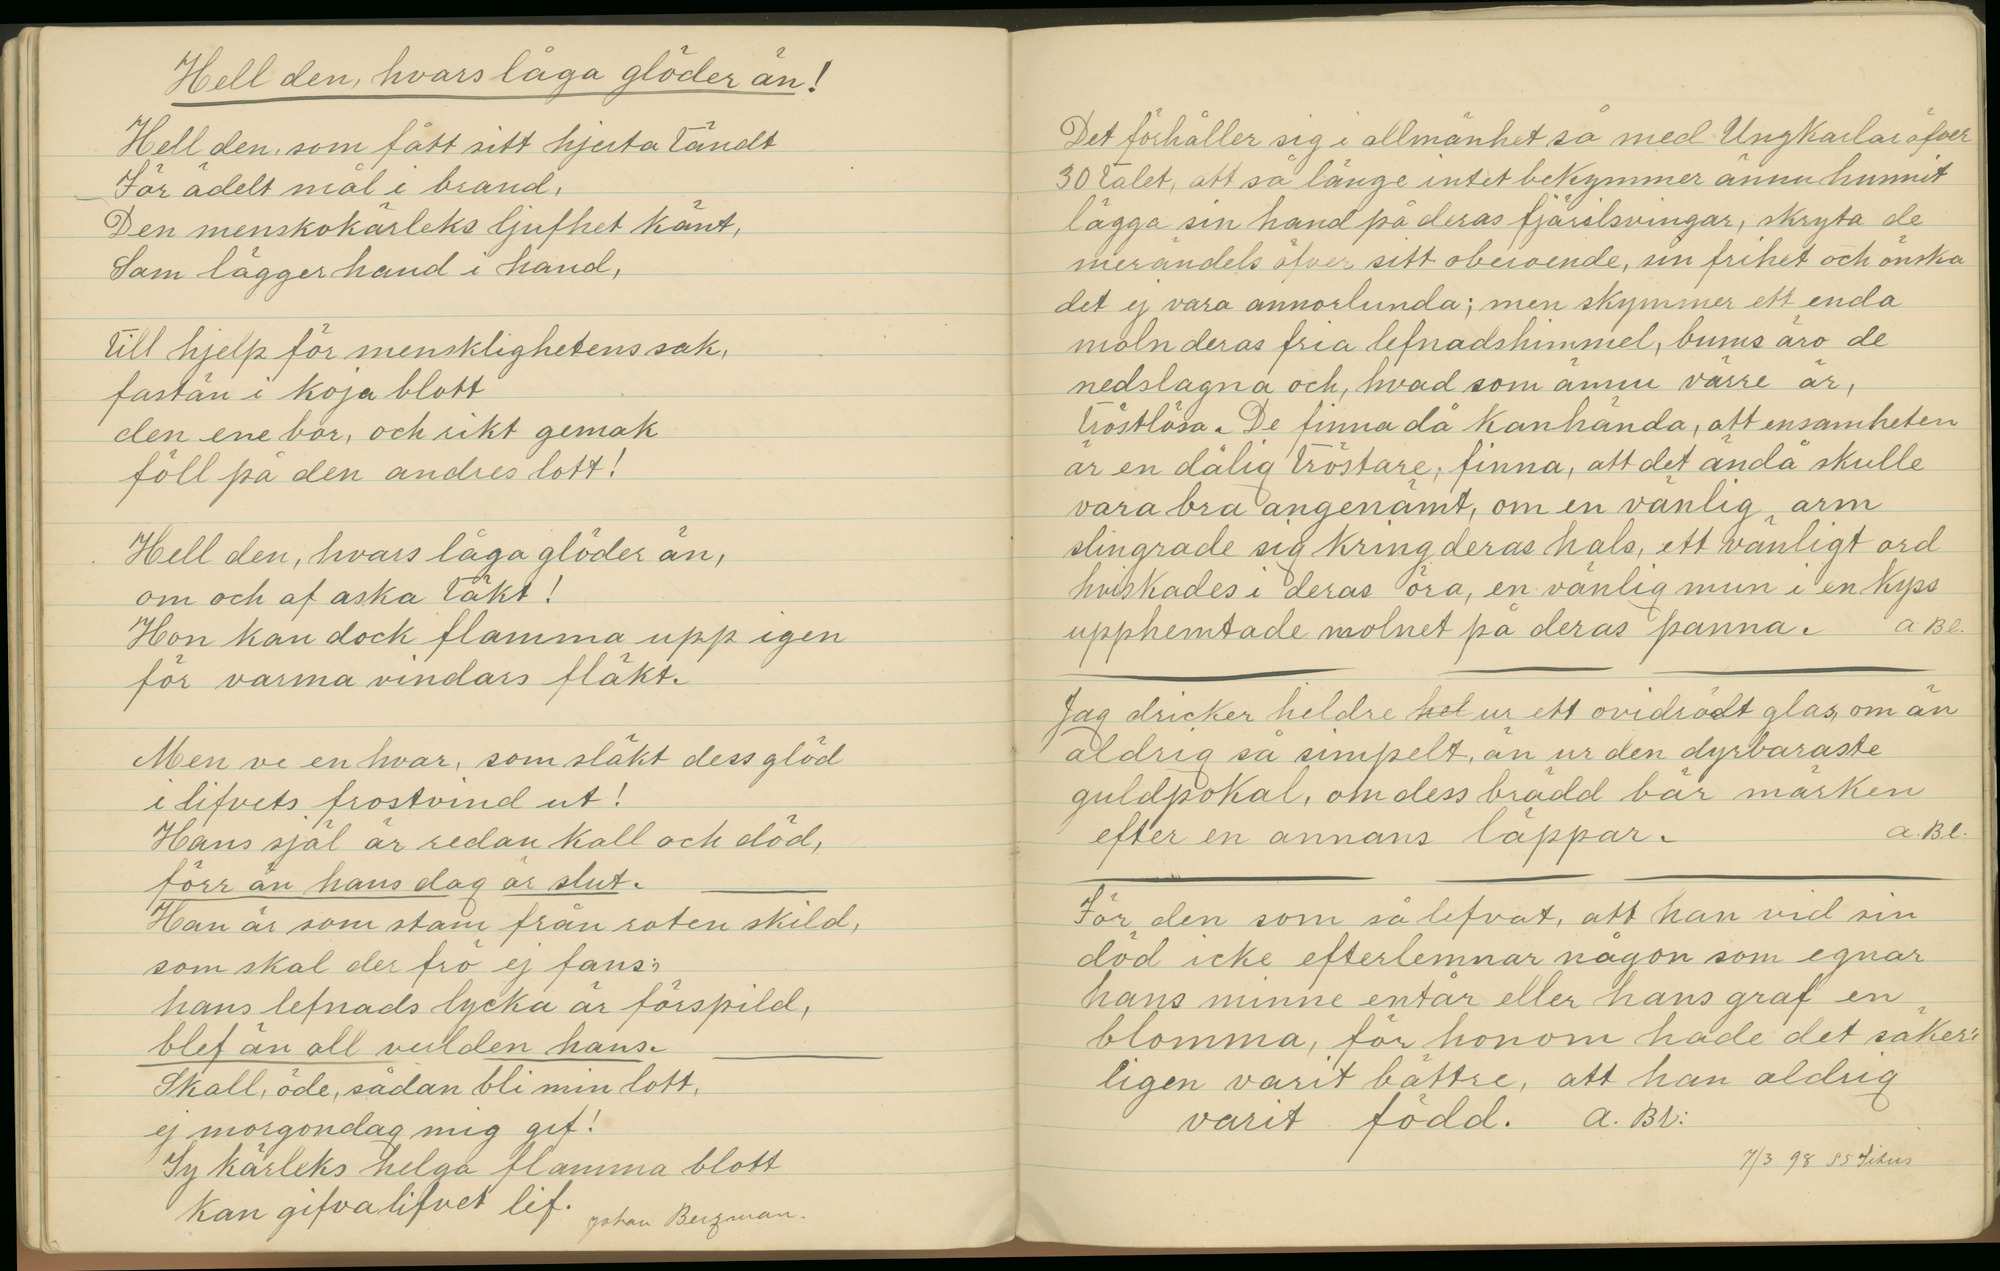 Hell den, hvars låga glöder än!
Hell den, som fått sitt hjerta tändt
För ädelt mål i brand,
Den menskokärleks ljufhet känt,
Som lägger hand i hand,
till hjelp för mensklighetens sak,
fastän i koja blott
den ene bor, och rikt gemak
föll på den andres lott!
Hell den, hvars låga glöder än,
om och af aska täkt!
Hon kan dock flamma upp igen
för varma vindars fläkt.
Men ve en hvar, som släkt dess glöd
i lifvets frostvind ut!
Hans själ är redan kall och död,
förr än hans dag är slut.
Han är som stam från roten skild,
som skal der frö ej fans;
hans lefnads lycka är förspild,
blef än all verlden hans.
Skall, öde, sådan bli min lott,
ej morgondag mig gif!
Ty kärleks helga flamma blott
kan gifva lifvet lif.
Johan Bergman.
Det förhåller sig i allmänhet så med Ungkarlar öfver
30 talet, att så länge intet bekymmer ännu hunnit
lägga sin hand på deras fjärilsvingar, skryta de
merändels öfver sitt oberoende, sin frihet och önska
det ej vara annorlunda; men skymmer ett enda
moln deras fria lefnadshimmel, bums äro de
nedslagna och, hvad som ännu värre är,
tröstlösa. De finna då kanhända, att ensamheten
är en dålig tröstare, finna, att det ändå skulle
vara bra angenämt, om en vänlig arm
slingrade sig kring deras hals, ett vänligt ord
hviskades i deras öra, en vänlig mun i en kyss
upphemtade molnet på deras panna. a Bl.
Jag dricker heldre hel ur ett ovidrördt glas, om än
aldrig så simpelt, än ur den dyrbaraste
guldpokal, om dess brädd bär märken
efter en annans läppar. a. Bl.
För den som så lefvat, att han vid sin
död icke efterlemnar någon som egnar
hans minne en tår eller hans graf en
blomma, för honom hade det säker:
ligen varit bättre, att han aldrig
varit född. a. Bl:
7/3 98 SS